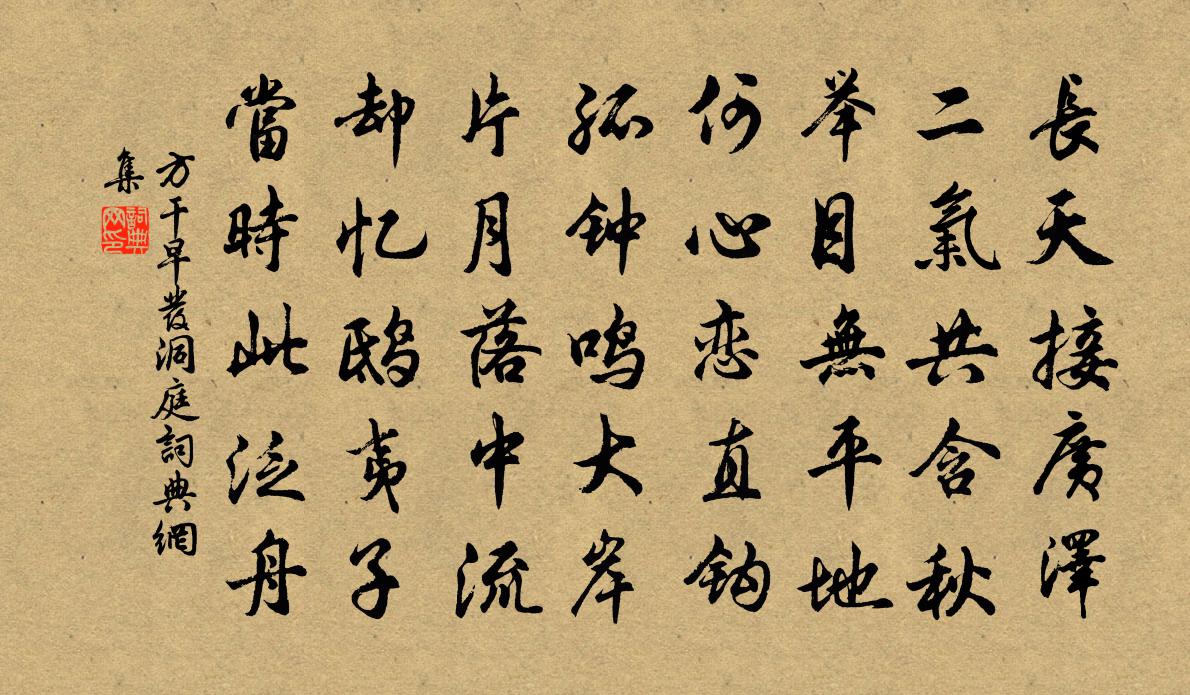 長天接廣澤
二氣共含秋
举目無平地
何心恋直钩
孤钟鸣大岸
片月落中流
却忆鸱夷子
當時此泛舟
方干早發洞庭詞典網
集
詞典網印